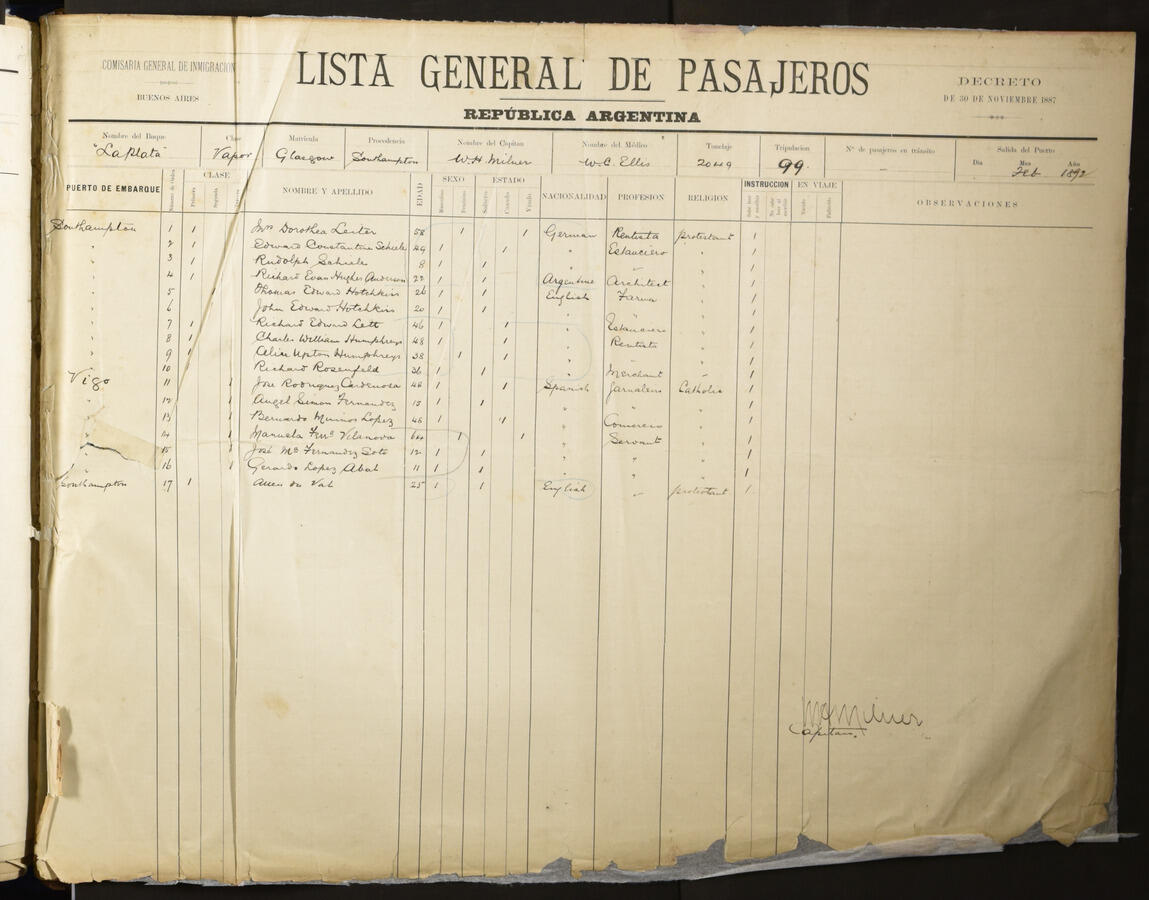 COMISARIA GENERAL DE INMIGRACIÓN
BUENOS AIRES
LISTA GENERAL DE PASAJEROS
REPÚBLICA ARGENTINA
DECRETO
DE 30 DE NOVIEMBRE 1887
Nombre del Buque Clase Matrícula Procedencia Nombre del Capitan Nombre del Médico Tonelaje Tripulacion N° de pasajeros en tránsito Salida del Puerto
Dia Mes Año
"La Plata" Vapor Glasgow Southampton W.H. Milner W.C. Ellis 2049 99. Feb 1892
PUERTO DE EMBARQUE Número de Orden CLASE Primera Segunda NOMBRE Y APELLIDO EDAD SEXO ESTADO Soltero Casado Viudo NACIONALIDAD PROFESION RELIGION INSTRUCCION EN VIAJE OBSERVACIONES
Southampton 1 1 Mrs Dorothea 58 1 1 German Rentista protestant 1
" 2 1 Edward Constantine Schiele 49 1 1 " Estanciero " 1
" 3 1 Rudolph Schiele 8 1 1 " " " 1
" 4 1 Richard Evan Hughes Anderson 22 1 1 Argentine Architect " 1
" 5 1 Thomas Edward Hotchkiss 26 1 1 English " 1
" 6 John Edward Hotchkiss 20 1 1 " " " 1
" 7 1 Richard Edward Lett 46 1 1 " Estanciero " 1
" 8 1 Charles William Humphreys 48 1 1 " Rentista " 1
" 9 1 Celia Upton Humphreys 38 1 1 " " 1
" 10 Richard Rosenfeld 36 1 1 " Merchant " 1
Vigo 11 1 Jose Rodriguez 48 1 1 Spanish Catholic 1
" 12 1 Angel Simon Fernandez 15 1 1 " " " 1
" 13 1 Bernardo Muinos Lopez 45 1 1 " Comercio " 1
" 14 1 Manuela Fern Vilanova 64 1 1 " Servant " 1
" 15 1 José Ma Fernandez Soto 12 1 1 " " " 1
" 16 1 Gerardo Lopez Abat 11 1 1 " " " 1
Southampton 17 1 25 1 1 English " protestant 1
W H Milner
Capitan.